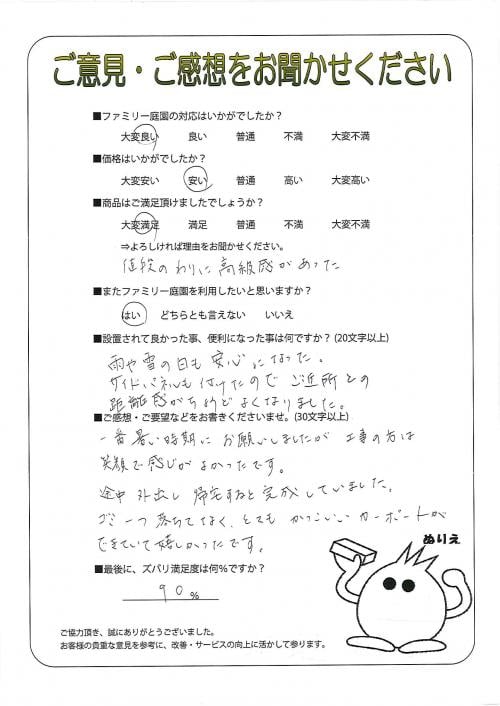 ご意見・ご感想をお聞かせください
■ファミリー庭園の対応はいかがでしたか？
大変良い 良い 普通 不満 大変不満
■価格はいかがでしたか？
大変安い 安い 普通 高い 大変高い
■商品はご満足頂けましたでしょうか？
大変満足 満足 普通 不満 大変不満
⇒よろしければ理由をお聞かせください。
値段のわりに高級感があった
■またファミリー庭園を利用したいと思いますか？
はい どちらとも言えない いいえ
■設置されて良かった事、便利になった事は何ですか？(20文字以上)
雨や雪の日も安心になった。
サイドパネルも付けたのでご近所との
距離感がちょうどよくなりました。
■ご感想・ご要望などをお書きくださいませ。(30文字以上)
一番暑い時期にお願いしましたが工事の方は
笑顔で感じがよかったです。
途中外出し帰宅すると完成していました。
ゴミ一つ落ちてなく、とてもかっこいいカーポートが
できていて嬉しかったです。
ぬりえ
■最後に、ズバリ満足度は何%ですか？
90%
ご協力頂き、誠にありがとうございました。
お客様の貴重な意見を参考に、改善・サービスの向上に活かして参ります。